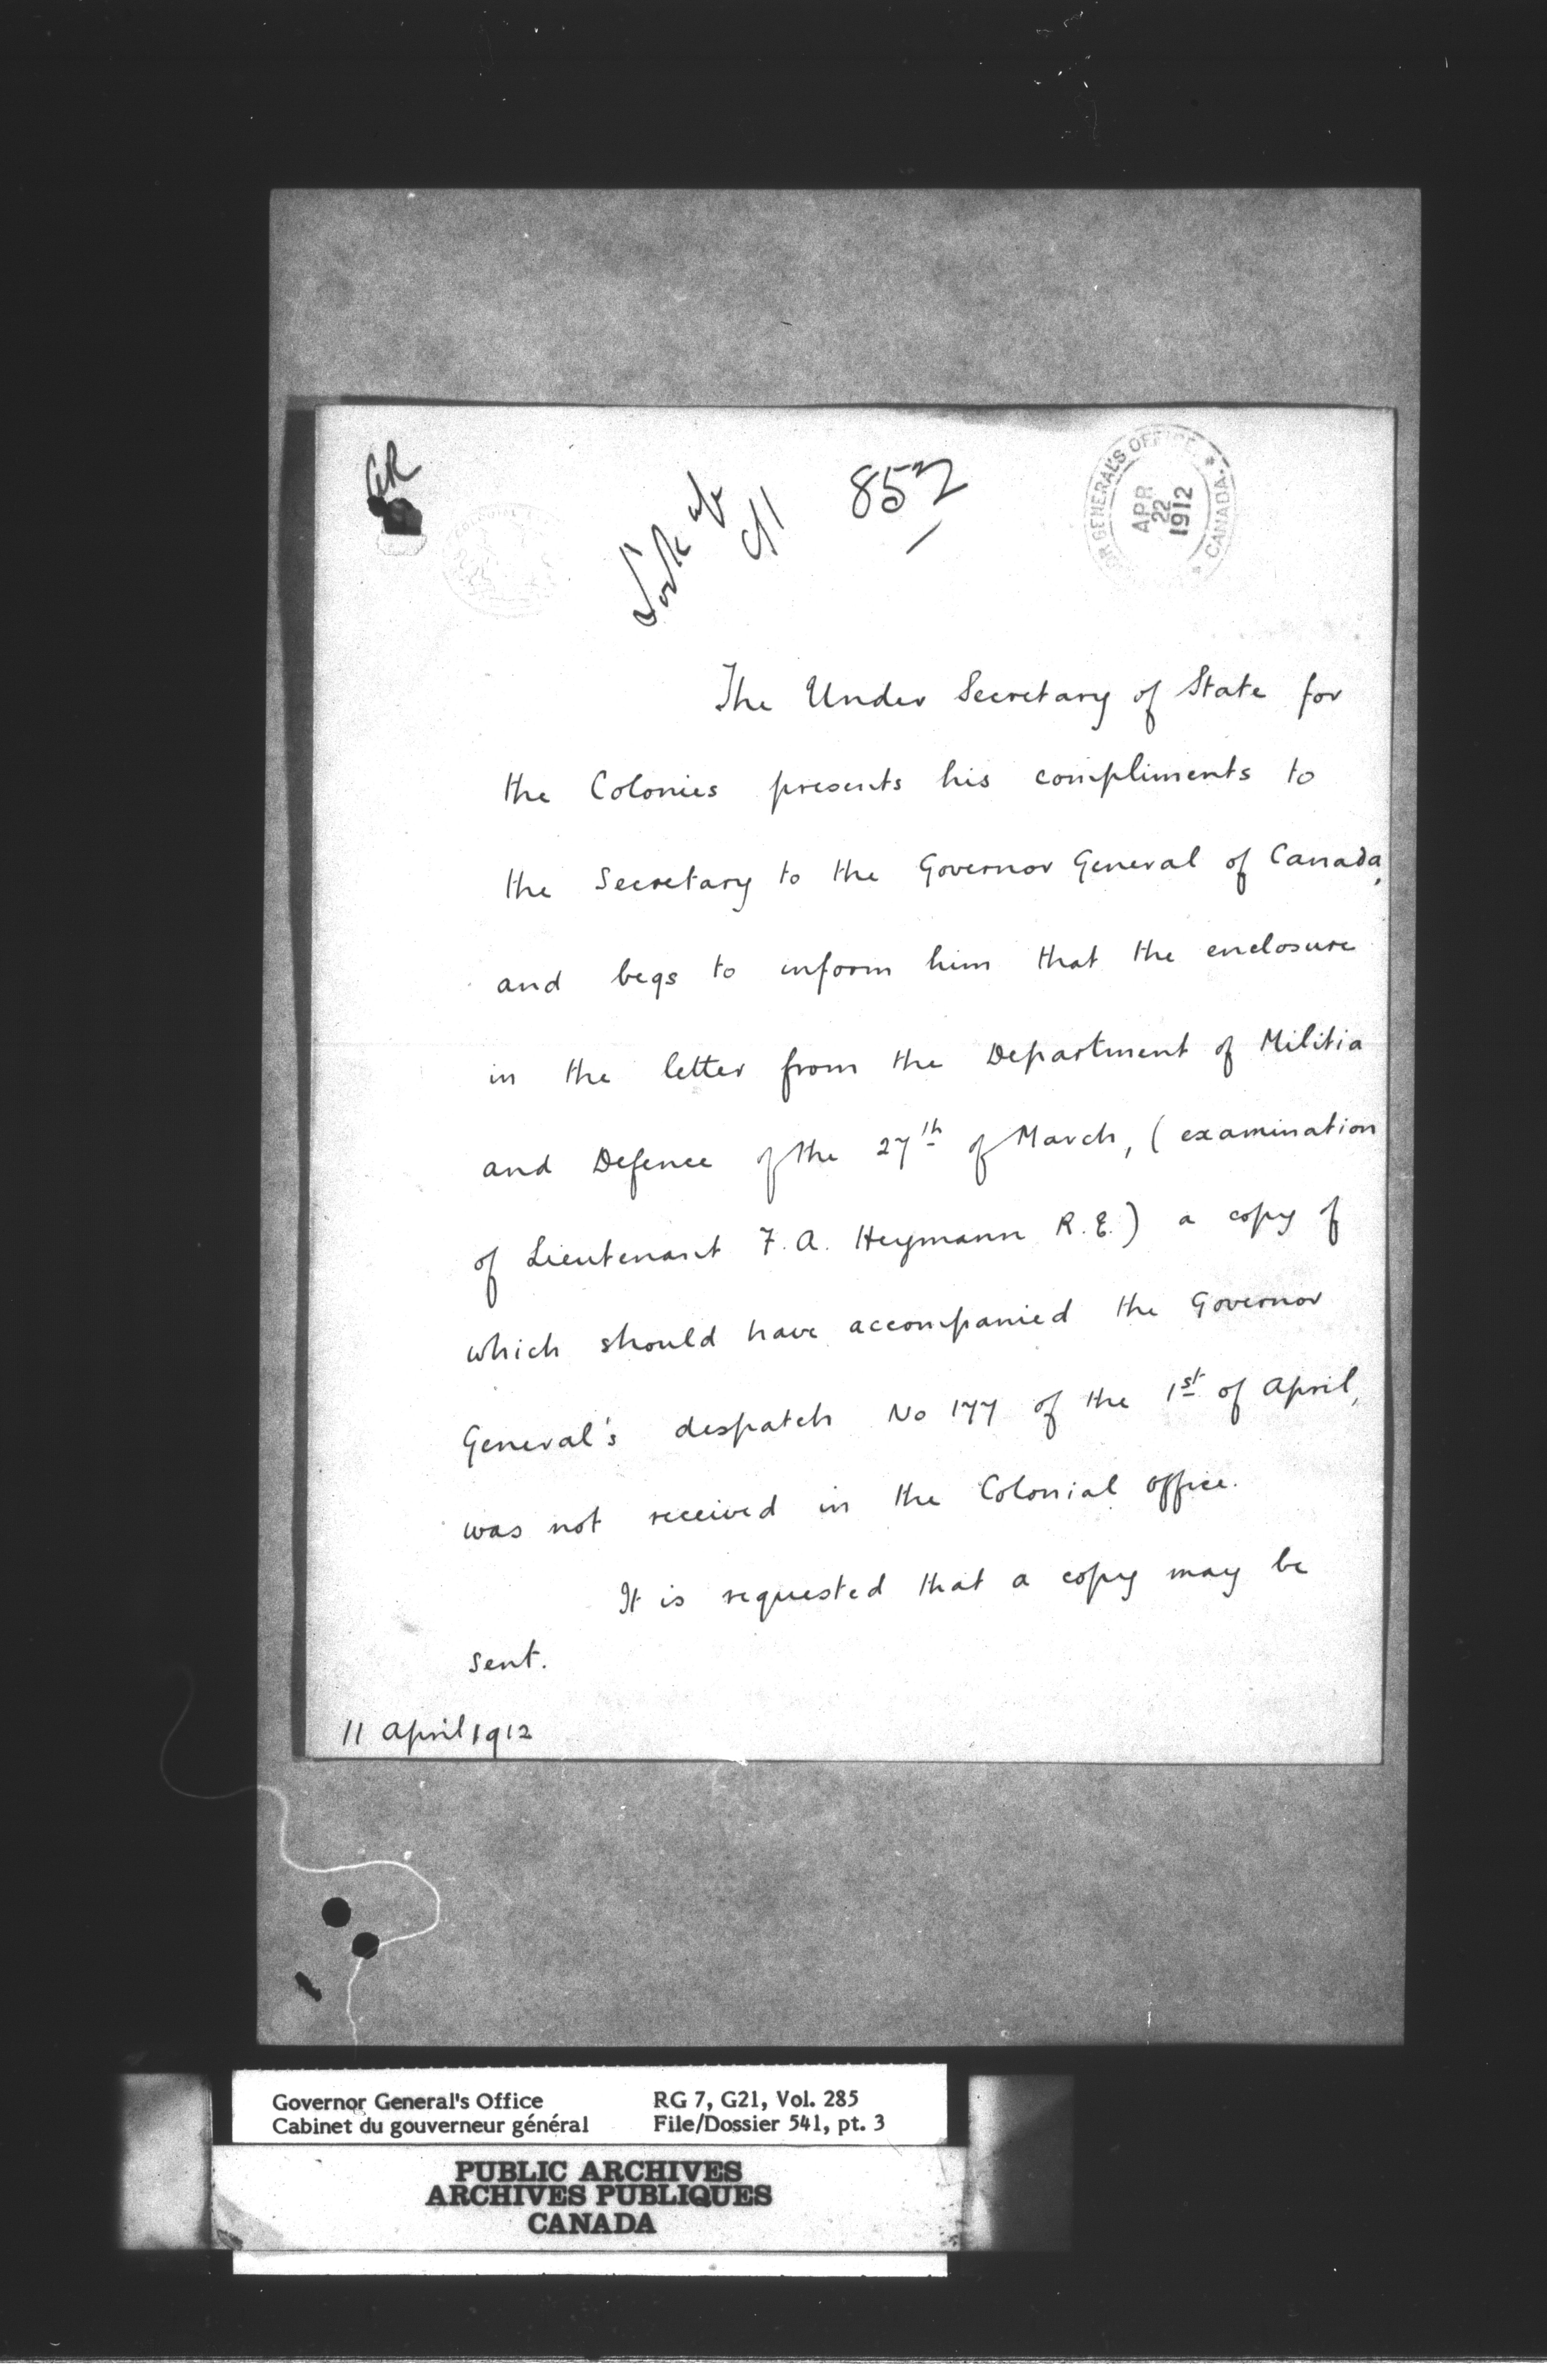 GR
Look up
852
GENERAL'S OFFICE
CANADA
APR
22
1912
The Under Secretary of State for
the Colonies presents his compliments to
the Secretary to the Governor General of Canada,
and begs to inform him that the enclosure
in the letter from the Department of Militia
and Defence of the 27th of March, (examination
of Lieutenant F. A. Heymann R.E.) a copy of
which should have accompanied the Governor
General's despatch No 177 of the 1st of April,
was not received in the Colonial Office.
It is requested that a copy may be
sent.
11 April 1912
Governor General's Office RG 7, G21, Vol. 285
Cabinet du gouverneur général File/Dossier 541, pt. 3
PUBLIC ARCHIVES
ARCHIVES PUBLIQUES
CANADA